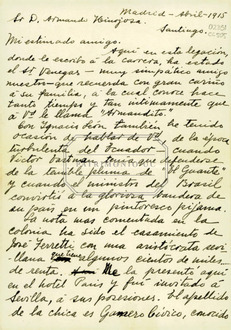 Madrid - Abril - 1915
Sr D. Armando Hinojosa.
Santiago.
Mi estimado amigo:
Aquí en esta legación,
donde le escribo a la carrera, ha estado
el Sr Venegas - muy simpático amigo
nuestro - que recuerda con gran cariño
á su familia, a la cual conoce hace
tanto tiempo y tan intimamente que
á Vd le llama "Armandito".
Con Ignacio León también he tenido
ocasión de hablar de Vd, de la época
turbulenta del Ecuador cuando
Victor Eastman tenía que defenderse
de la terrible pluma de "El Guante"
y cuando el ministro del Brasil
convirtió á la gloriosa bandera de
su país en un pintoresco pijama
La nota mas comentada en la
colonia ha sido el casamiento de
José Ferretti con una aristócrata sevi-
llana que tiene algunos cientos de miles
de renta. Me la presentó aquí
en el hotel París y fuí invitado á
Sevilla, á sus posesiones. El apellido
de la chica es Gamero Cívico, conocido